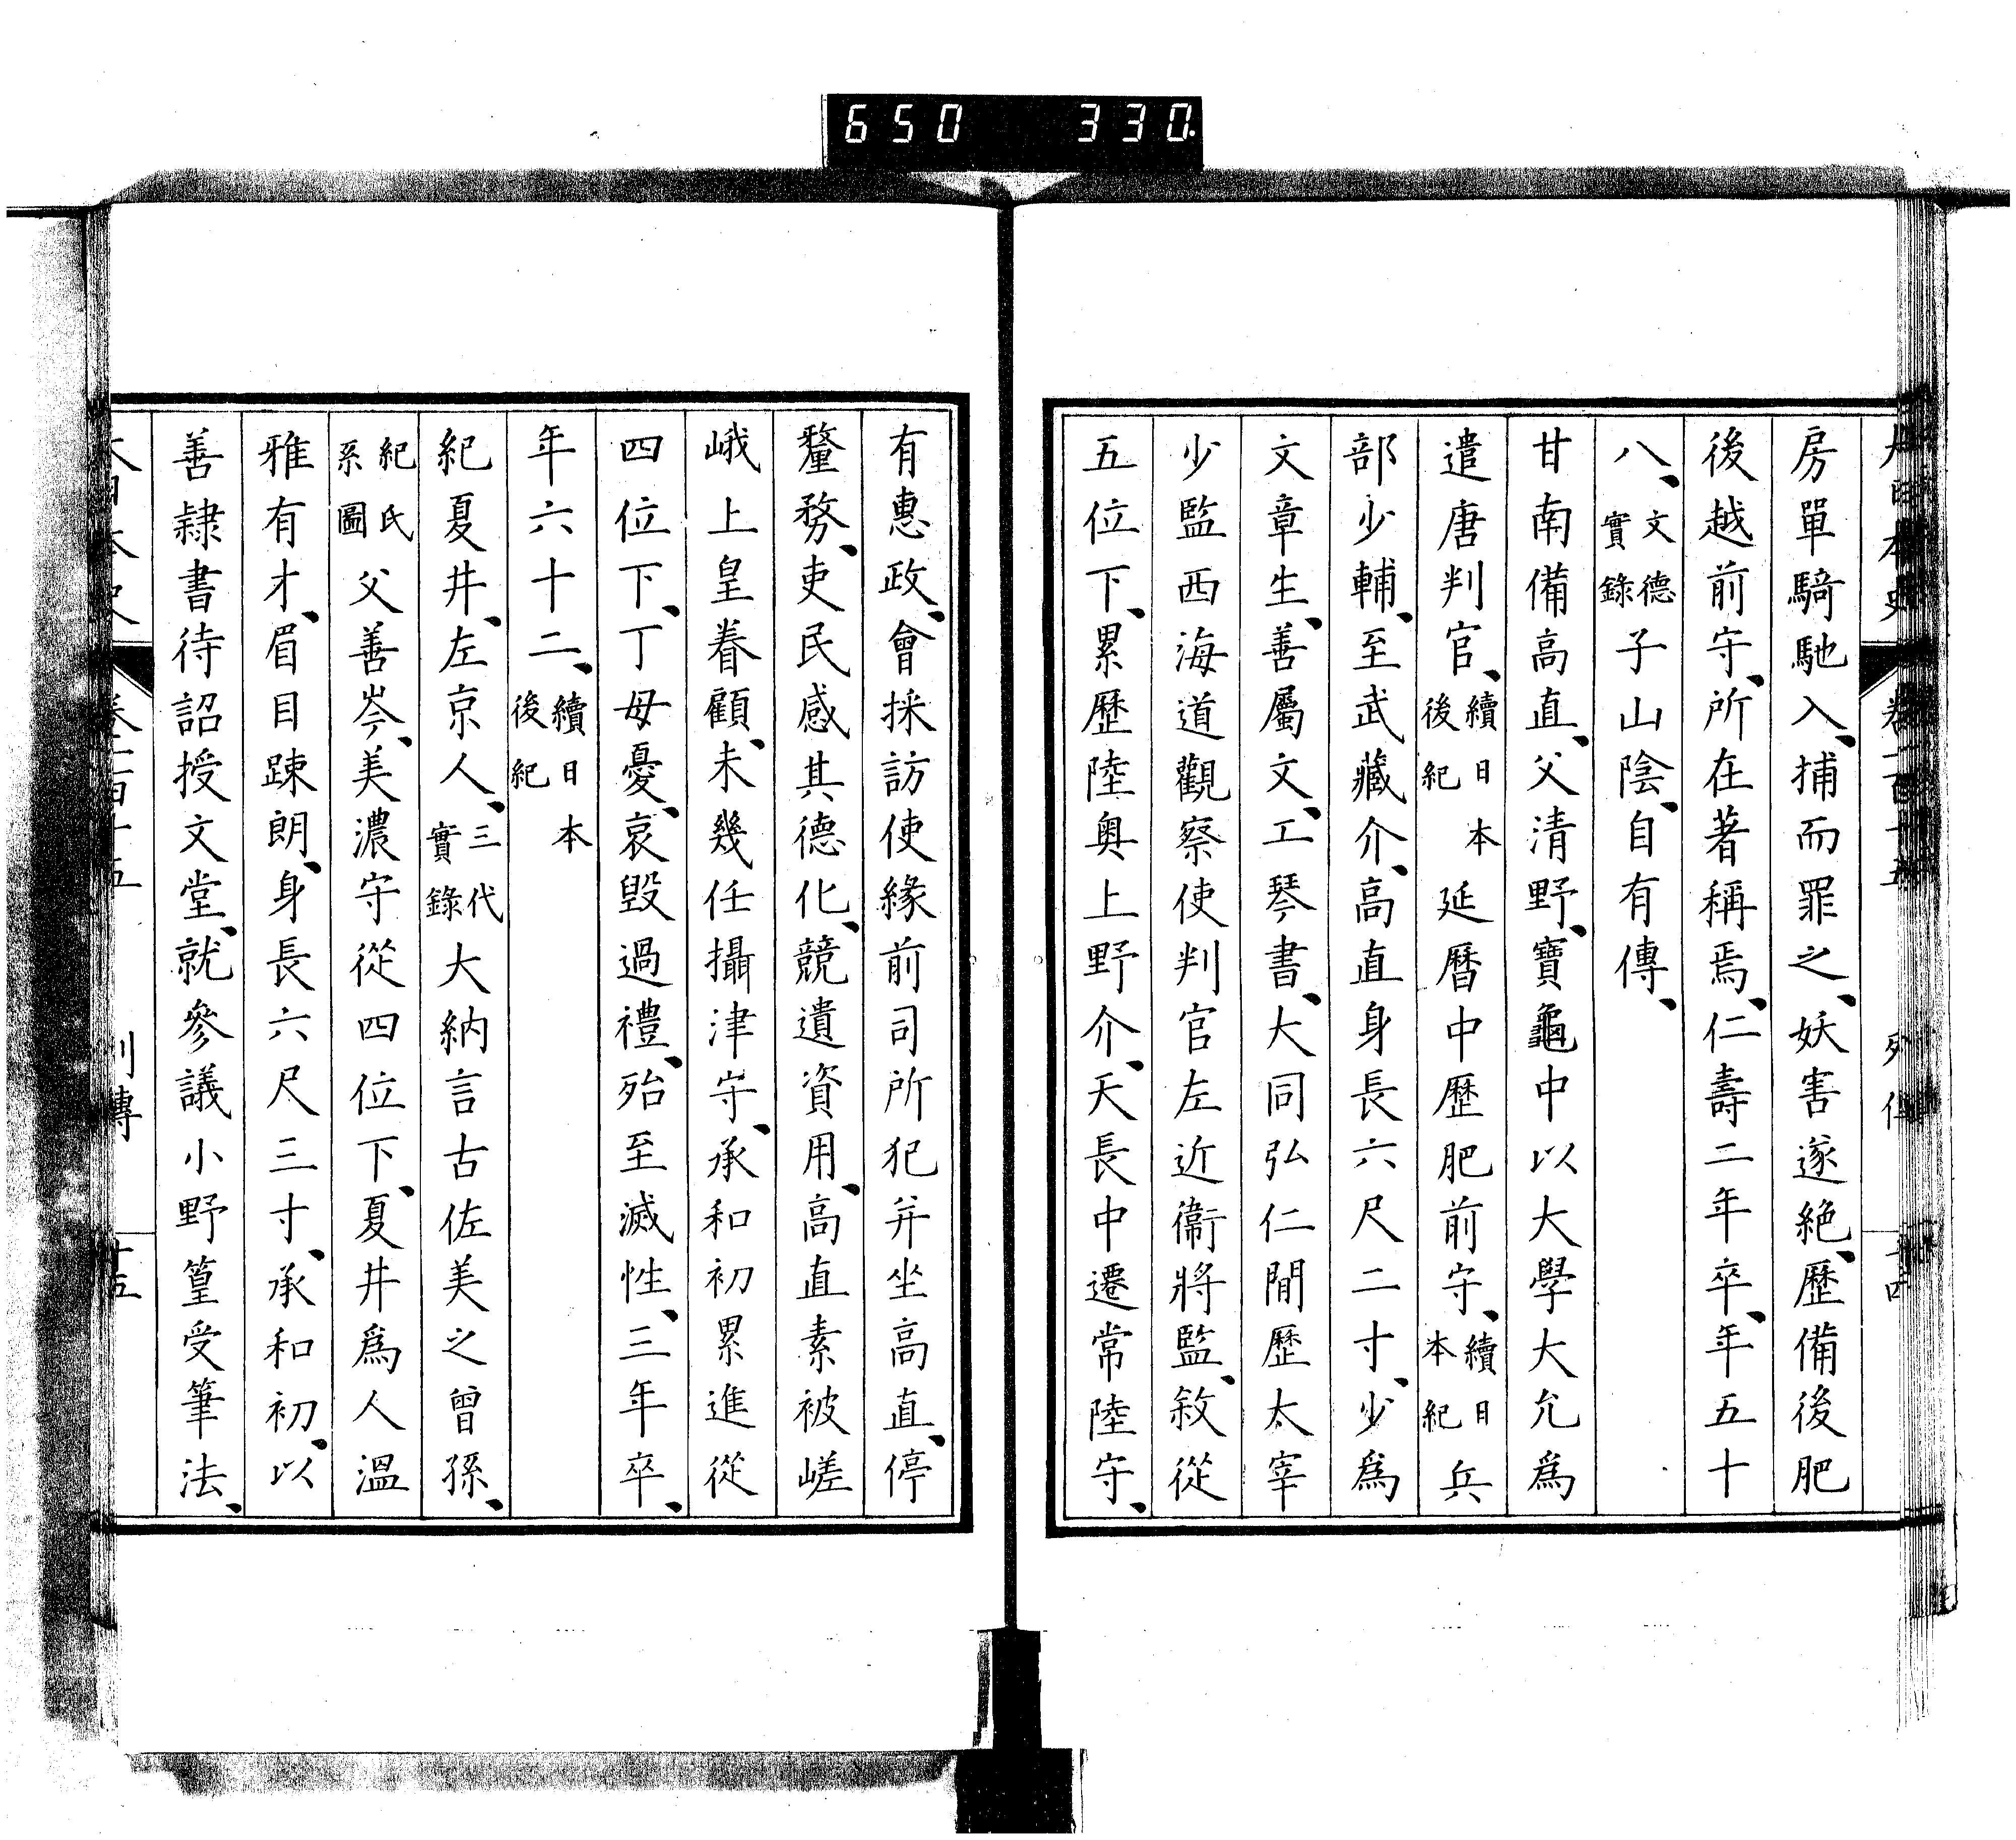 650 330.
大日本史 卷一百十五 列傳 十四
房單騎馳入、捕而罪之、妖害遂絶、歷備後肥
後越前守、所在著稱焉、仁壽二年卒、年五十
八、文德實錄子山陰、自有傳、
甘南備高直、父清野、寶龜中以大學大允爲
遣唐判官、續日本後紀延曆中歷肥前守、續日本紀兵
部少輔、至武藏介、高直身長六尺二寸、少爲
文章生、善屬文、工琴書、大同弘仁間歷太宰
少監西海道觀察使判官左近衞將監、敘從
五位下、累歷陸奥上野介、天長中遷常陸守、
有惠政、會採訪使緣前司所犯幷坐高直、停
釐務、吏民感其德化、競遺資用、高直素被嵯
峨上皇眷顧、未幾任攝津守、承和初累進從
四位下、丁母憂、哀毀過禮、殆至滅性、三年卒、
年六十二、續日本後紀
紀夏井、左京人、三代實錄大納言古佐美之曾孫、
紀氏系圖父善岑、美濃守從四位下、夏井爲人溫
雅有才、眉目踈朗、身長六尺三寸、承和初、以
善隷書待詔授文堂、就參議小野篁受筆法、
大日本史 卷一百十五 列傳 十五